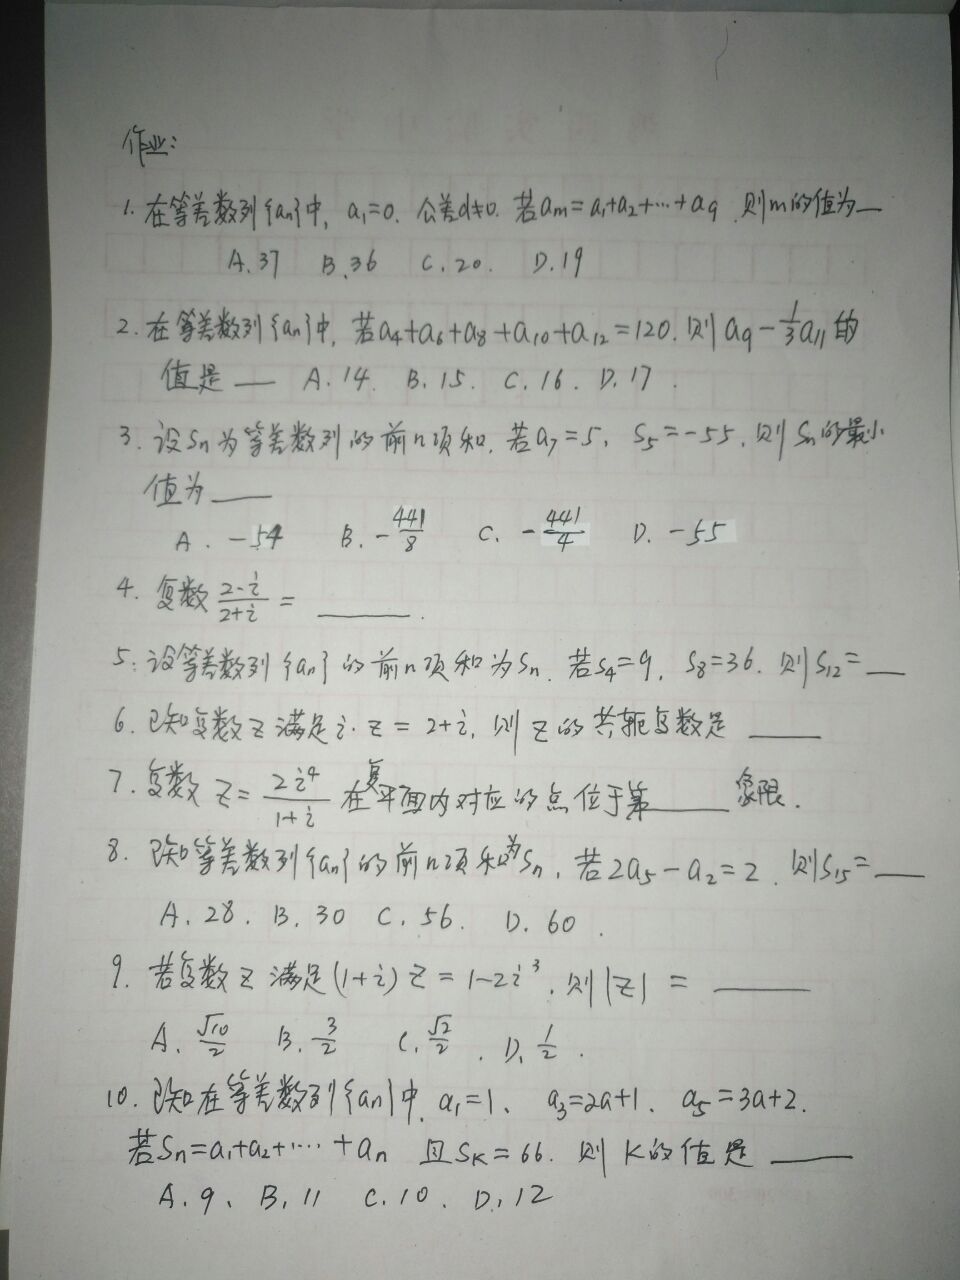 作业:
1. 在等差数列{an}中, a₁=0. 公差d≠0. 若am=a₁+a₂+…+a₉ 则m的值为__
A. 37 B. 36 C. 20. D. 19
2. 在等差数列{an}中, 若a₄+a₆+a₈+a₁₀+a₁₂=120. 则a₉-1/3a₁₁的
值是__ A. 14. B. 15. C. 16. D. 17.
3. 设Sn为等差数列的前n项和. 若a₇=5, S₅=-55, 则Sn的最小
值为____
A. -54 B. -441/8 C. -441/4 D. -55
4. 复数 2-i/2+i = ____.
5. 设等差数列{an}的前n项和为Sn. 若S₄=9, S₈=36. 则S₁₂=__
6. 已知复数z满足i·z=2+i, 则z的共轭复数是 ____
7. 复数 z=2i⁴/1+i 在复平面内对应的点位于第____象限.
8. 已知等差数列{an}的前n项和为Sn, 若2a₅-a₂=2. 则S₁₅=__
A. 28. B. 30 C. 56. D. 60.
9. 若复数z满足(1+i)z=1-2i³, 则|z|= ____
A. √10/2 B. 3/2 C. √2/2. D. 1/2.
10. 已知在等差数列{an}中, a₁=1、 a₃=2a+1、 a₅=3a+2.
若Sn=a₁+a₂+……+an 且SK=66. 则K的值是____
A. 9、 B. 11 C. 10. D. 12